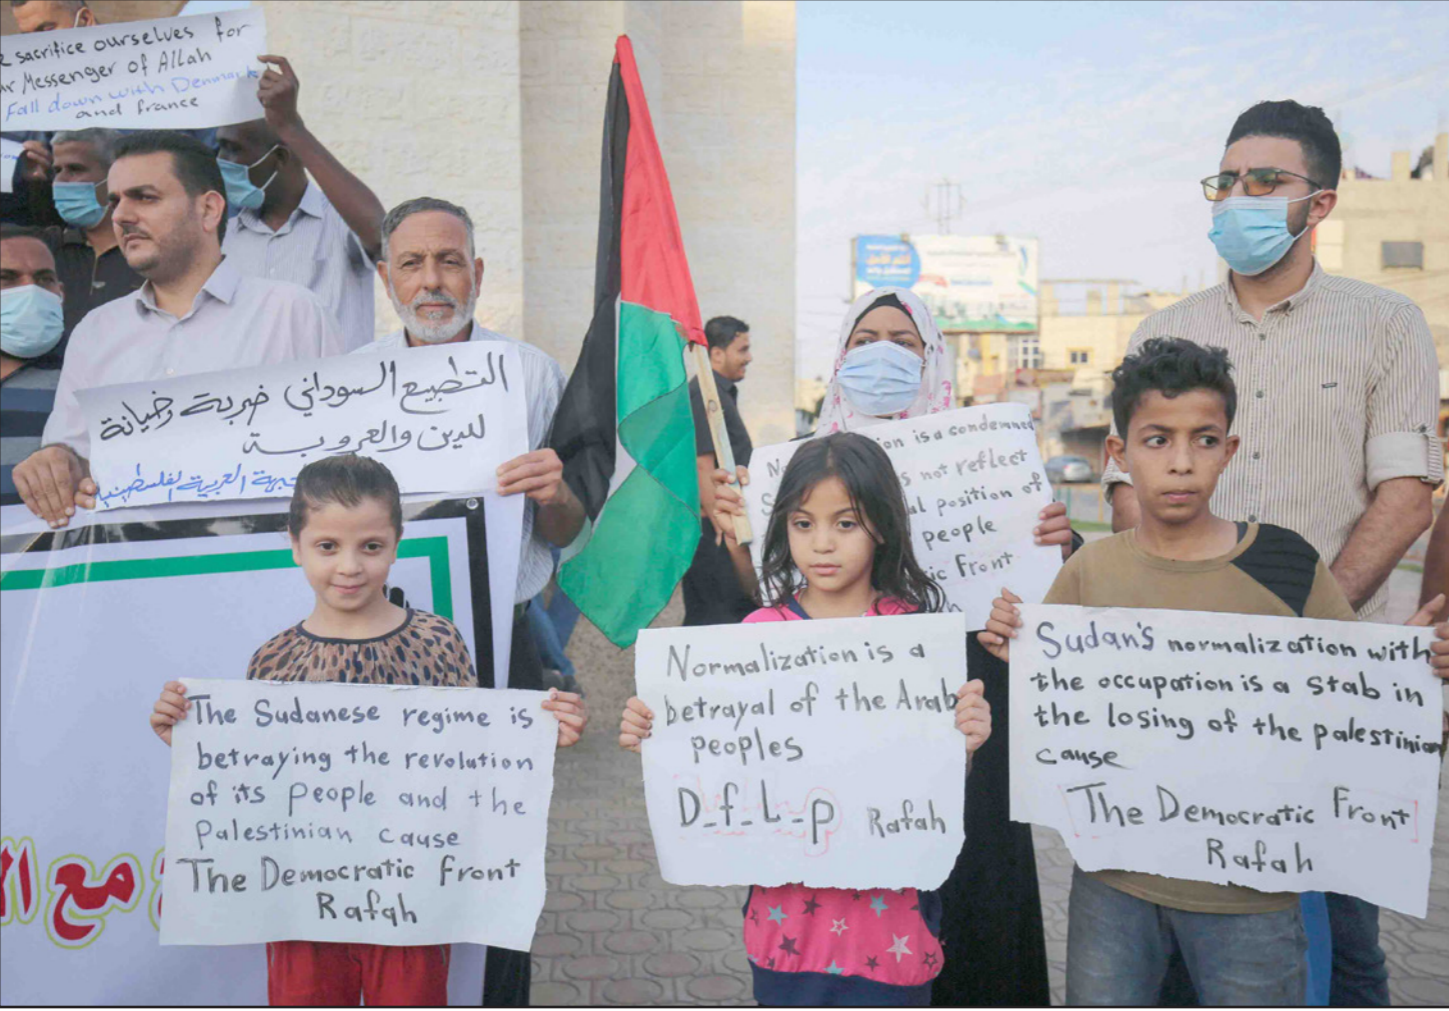 sacrifice ourselves for
Messenger of Allah
Fall down with Denmark
and france
التطبيع السوداني ضربة وخيانة
للدين والعروبة
العربية الفلسطينية
ion is a condemned
not reflect
position of
people
ic Front
The Sudanese regime is
betraying the revolution
of its people and the
Palestinian cause
The Democratic Front
Rafah
Normalization is a
betrayal of the Arab
peoples
D_f_L_p Rafah
Sudan's normalization with
the occupation is a stab in
the losing of the palestinian
cause
The Democratic Front
Rafah
مع